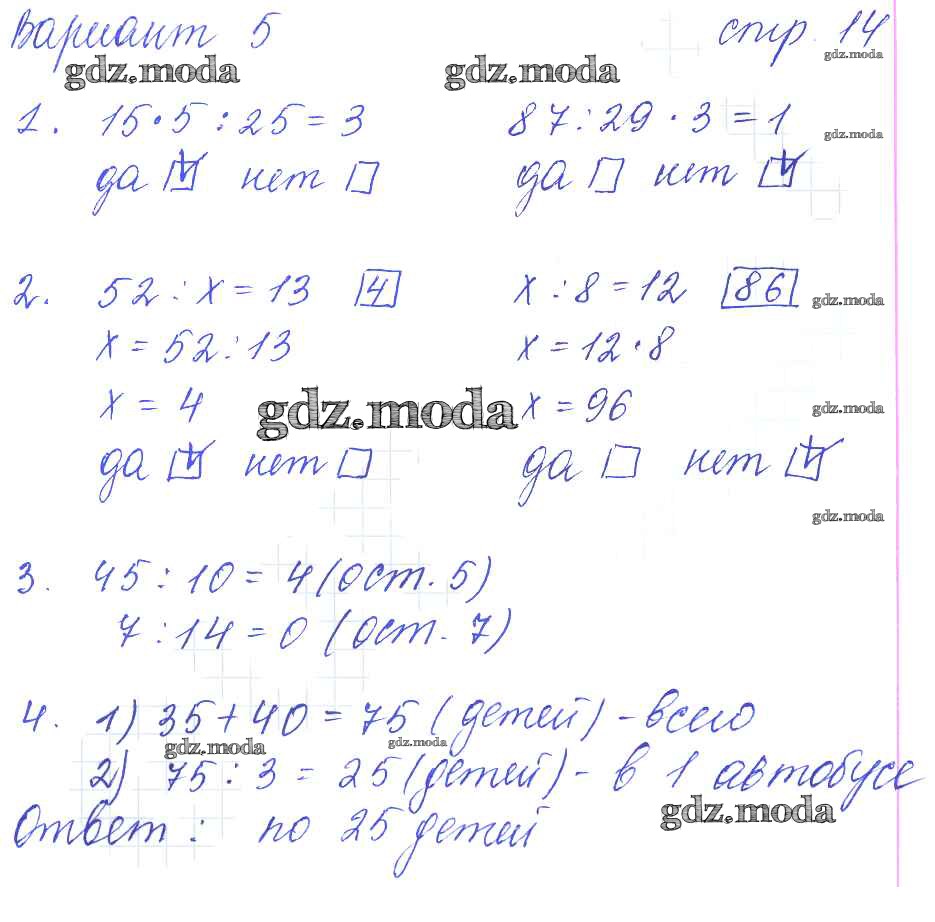 Вариант 5 стр. 14
gdz.moda gdz.moda gdz.moda
1. 15·5:25=3 87:29·3=1
gdz.moda
да ☑ нет ☐ да ☐ нет ☑
2. 52:x=13 4 x:8=12 86
gdz.moda
x=52:13 x=12·8
x=4 x=96
gdz.moda gdz.moda
да ☑ нет ☐ да ☐ нет ☑
gdz.moda
3. 45:10=4(ост. 5)
7:14=0 (ост. 7)
4. 1) 35+40=75 (детей) - всего
gdz.moda gdz.moda
2) 75:3=25 (детей) - в 1 автобусе
gdz.moda
Ответ: по 25 детей